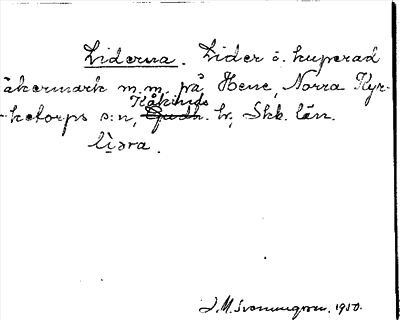 Liderna. Lider i. kuperad
åkermark m.m. på Hene, Norra Kyr-
ketorps s:n, Kåkinds Gudh. hr, Skb. län.
lìəra.
J. M. Svenungson. 1950.